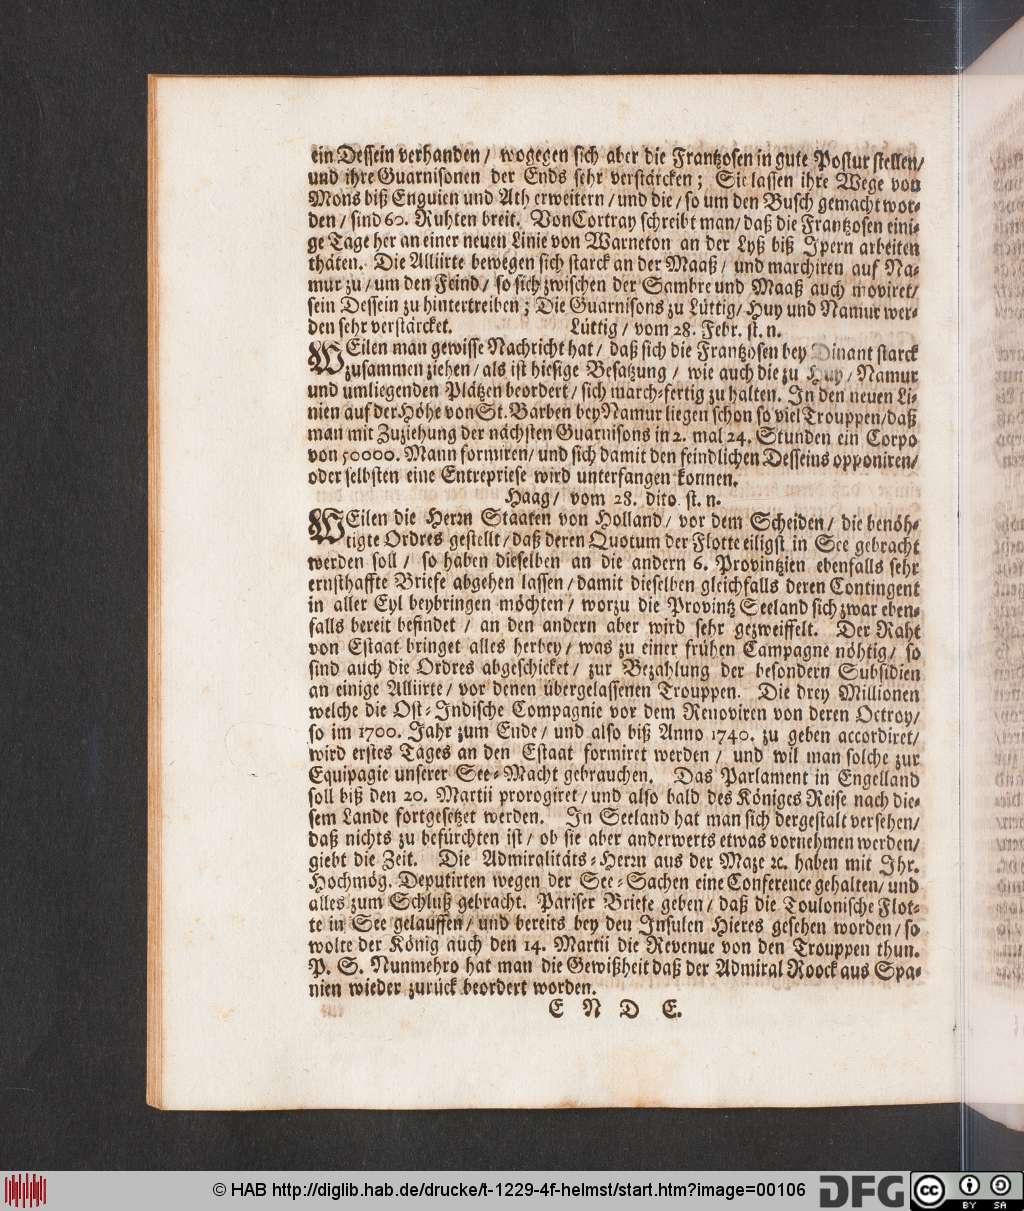 ein Dessein verhanden / wogegen sich aber die Frantzosen in gute Postur stellen/
und ihre Guarnisonen der Ends sehr verstärcken; Sie lassen ihre Wege von
Mons biß Enguien und Ath erweitern / und die / so um den Busch gemacht wor-
den / sind 60. Ruhten breit. Von Cortray schreibt man / daß die Frantzosen eini-
ge Tage her an einer neuen Linie von Warneton an der Lyß biß Ipern arbeiten
thäten. Die Alliirte bewegen sich starck an der Maaß / und marchiren auf Na-
mur zu / um den Feind / so sich zwischen der Sambre und Maaß auch moviret/
sein Dessein zu hintertreiben; Die Guarnisons zu Lüttig / Huy und Namur wer-
den sehr verstärcket. Lüttig / vom 28. Febr. st. n.
WEilen man gewisse Nachricht hat / daß sich die Frantzosen bey Dinant starck
zusammen ziehen / als ist hiesige Besatzung / wie auch die zu Huy / Namur
und umliegenden Plätzen beordert / sich march-fertig zu halten. In den neuen Li-
nien auf der Höhe von St. Barben bey Namur liegen schon so viel Trouppen / daß
man mit Zuziehung der nächsten Guarnisons in 2. mal 24. Stunden ein Corpo
von 50000. Mann formiren / und sich damit den feindlichen Desseins opponiren/
oder selbsten eine Entrepriese wird unterfangen konnen.
Haag / vom 28. dito st. n.
WEilen die Herrn Staaten von Holland / vor dem Scheiden / die benöh-
tigte Ordres gestellt / daß deren Quotum der Flotte eiligst in See gebracht
werden soll / so haben dieselben an die andern 6. Provintzien ebenfalls sehr
ernsthaffte Briefe abgehen lassen / damit dieselben gleichfalls deren Contingent
in aller Eyl beybringen möchten / worzu die Provintz Seeland sich zwar eben-
falls bereit befindet / an den andern aber wird sehr gezweiffelt. Der Raht
von Estaat bringet alles herbey / was zu einer frühen Campagne nöhtig / so
sind auch die Ordres abgeschicket / zur Bezahlung der besondern Subsidien
an einige Alliirte / vor denen übergelassenen Trouppen. Die drey Millionen
welche die Ost-Indische Compagnie vor dem Renoviren von deren Octroy/
so im 1700. Jahr zum Ende / und also biß Anno 1740. zu geben accordiret/
wird erstes Tages an den Estaat formiret werden / und wil man solche zur
Equipagie unserer See-Macht gebrauchen. Das Parlament in Engelland
soll biß den 20. Martii prorogiret / und also bald des Königes Reise nach die-
sem Lande fortgesetzet werden. In Seeland hat man sich dergestalt versehen/
daß nichts zu befürchten ist / ob sie aber anderwerts etwas vornehmen werden/
giebt die Zeit. Die Admiralitäts-Herrn aus der Maze ꝛc. haben mit Ihr.
Hochmög. Deputirten wegen der See-Sachen eine Conference gehalten / und
alles zum Schluß gebracht. Pariser Briefe geben / daß die Toulonische Flot-
te in See gelauffen / und bereits bey den Insulen Hieres gesehen worden / so
wolte der König auch den 14. Martii die Revenue von den Trouppen thun.
P. S. Nunmehro hat man die Gewißheit daß der Admiral Roock aus Spa-
nien wieder zurück beordert worden.
E N D E.
© HAB http://diglib.hab.de/drucke/t-1229-4f-helmst/start.htm?image=00106
DFG
cc BY SA